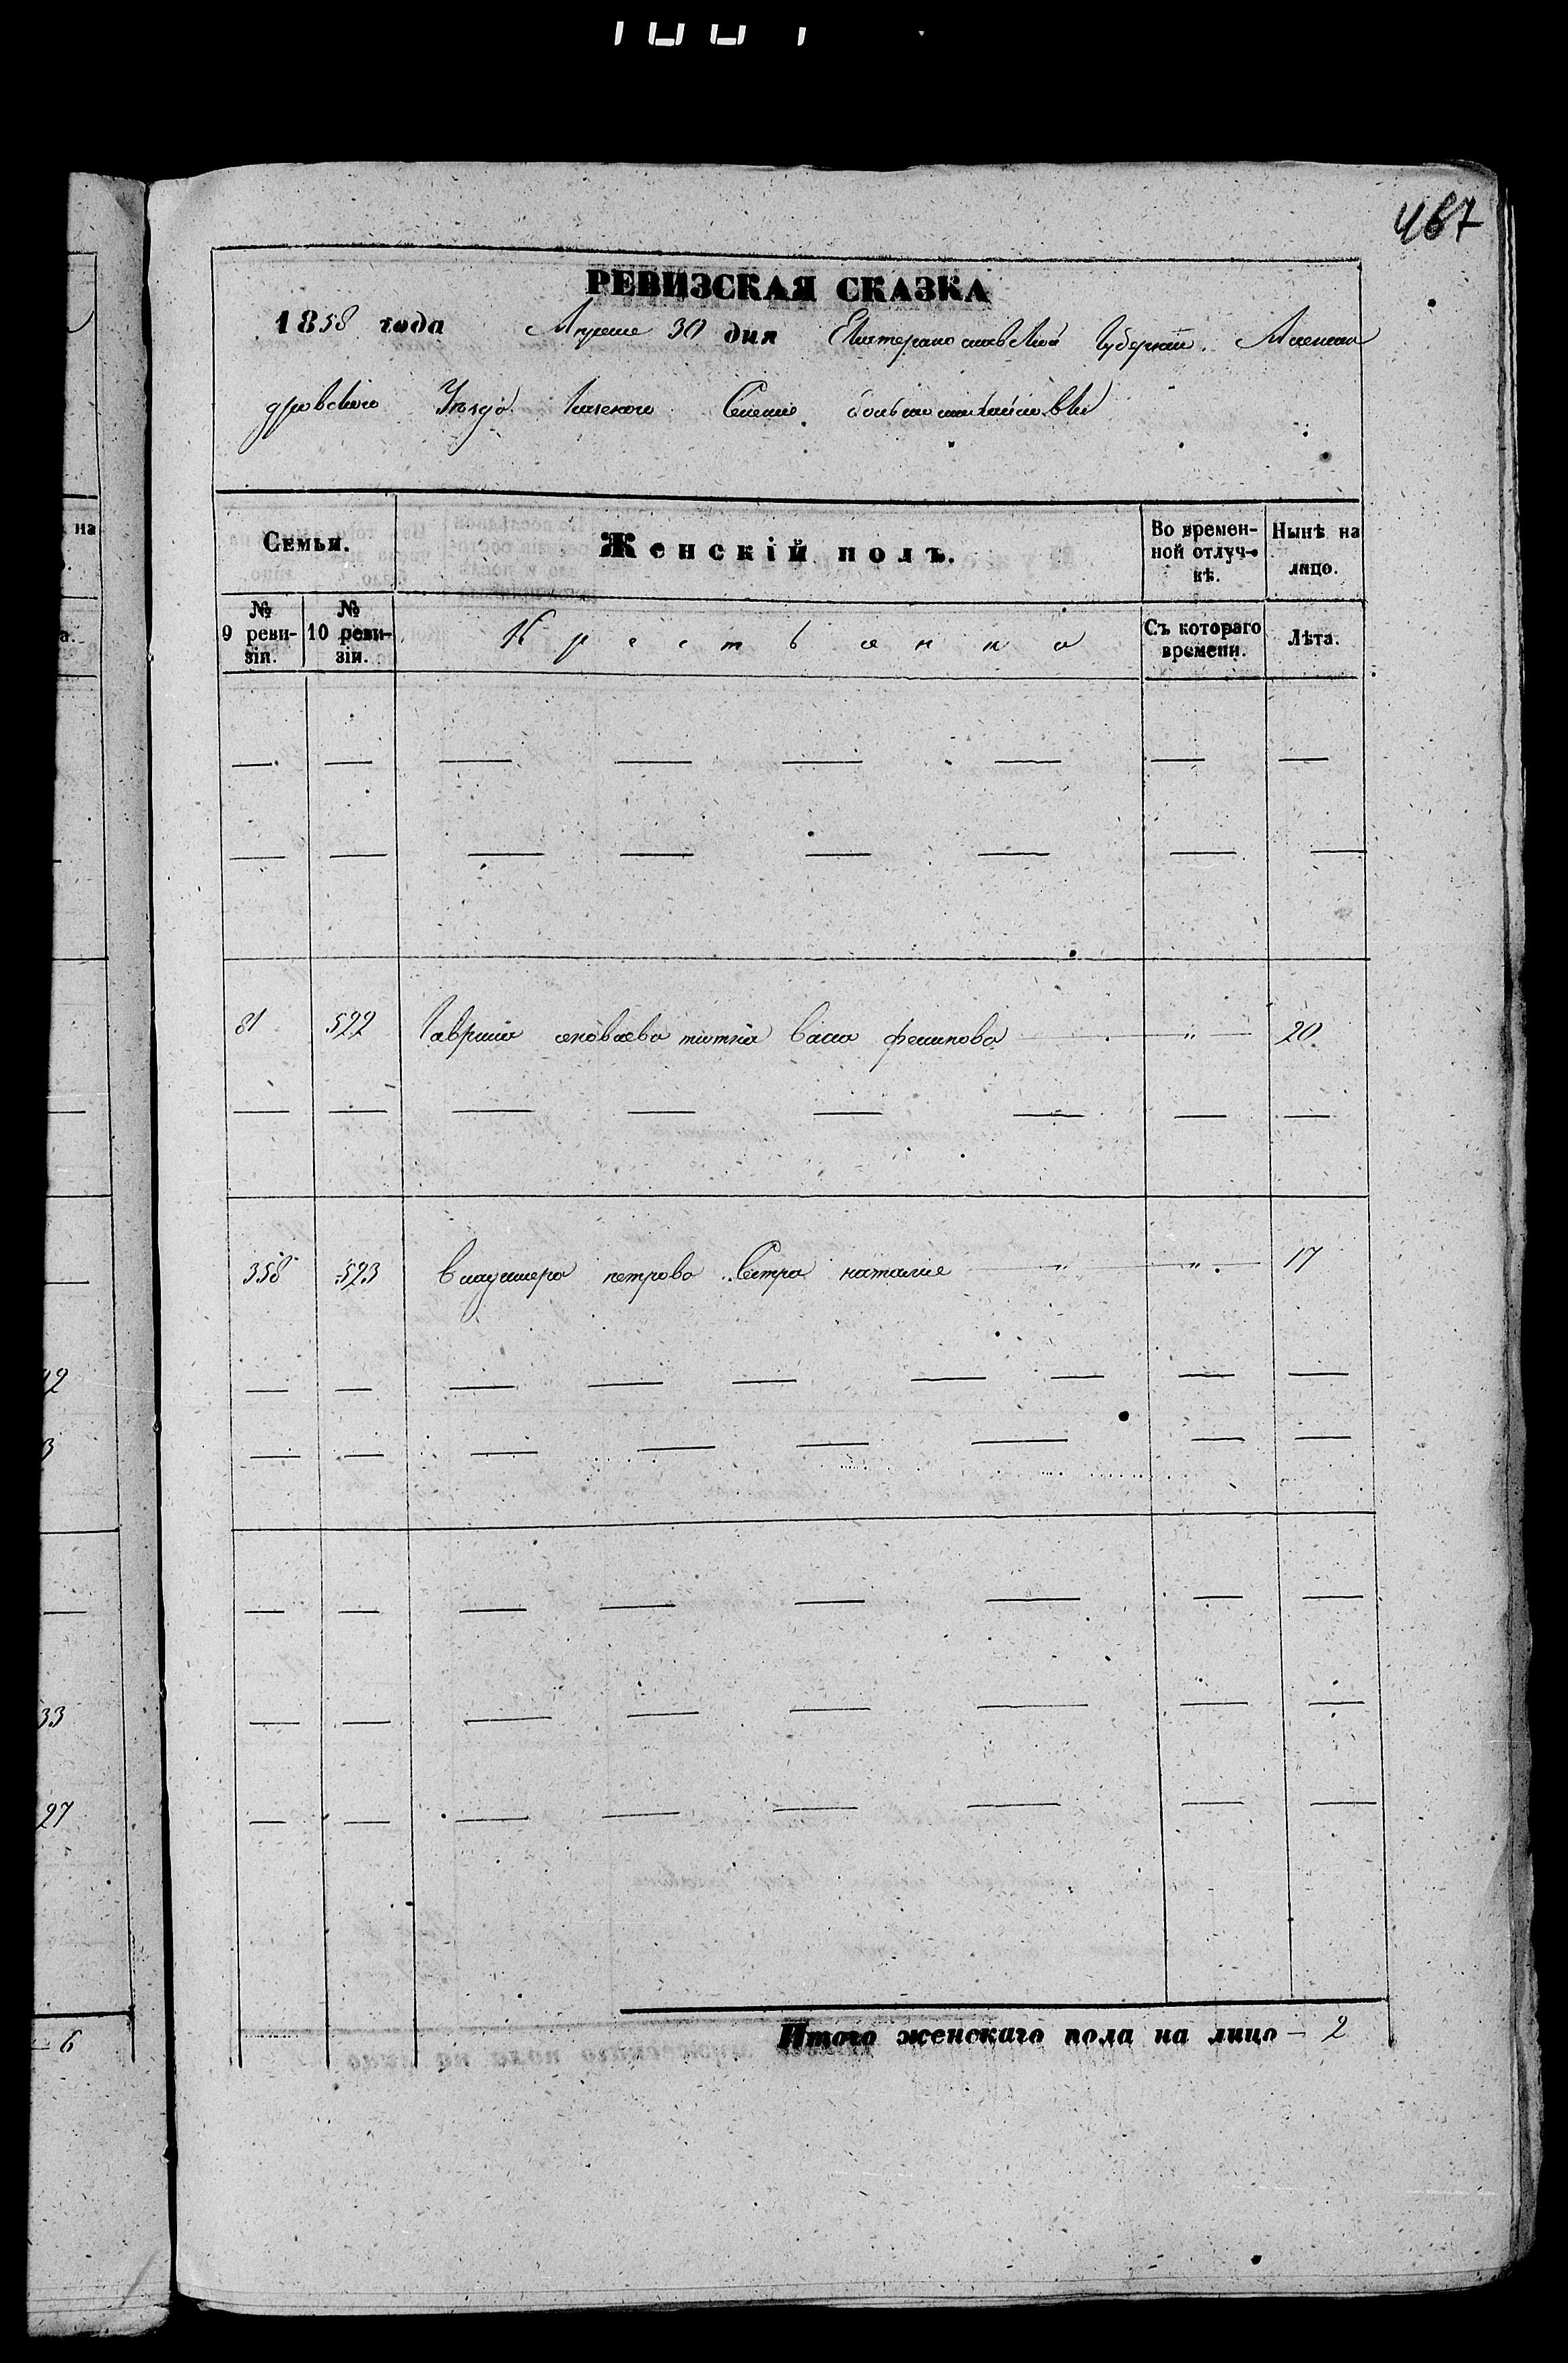 467
РЕВИЗСКАЯ СКАЗКА
1858 года Апреля 30 дня Екатеринославской Губернии Алексан
дровского Уезда Села
Семьи. Женскій полъ. Во времен-ной отлуч-кѣ. Нынѣ на лицо.
№ 9 реви-зіи. № 10 реви-зіи. Съ котораго времени. Лѣта.
81 522 Гаврила жена Филипова " 20
358 523 Владимера петрова Сестра наталия " " 17
Итого женскаго пола на лицо — 2
на
а.
33
27
6